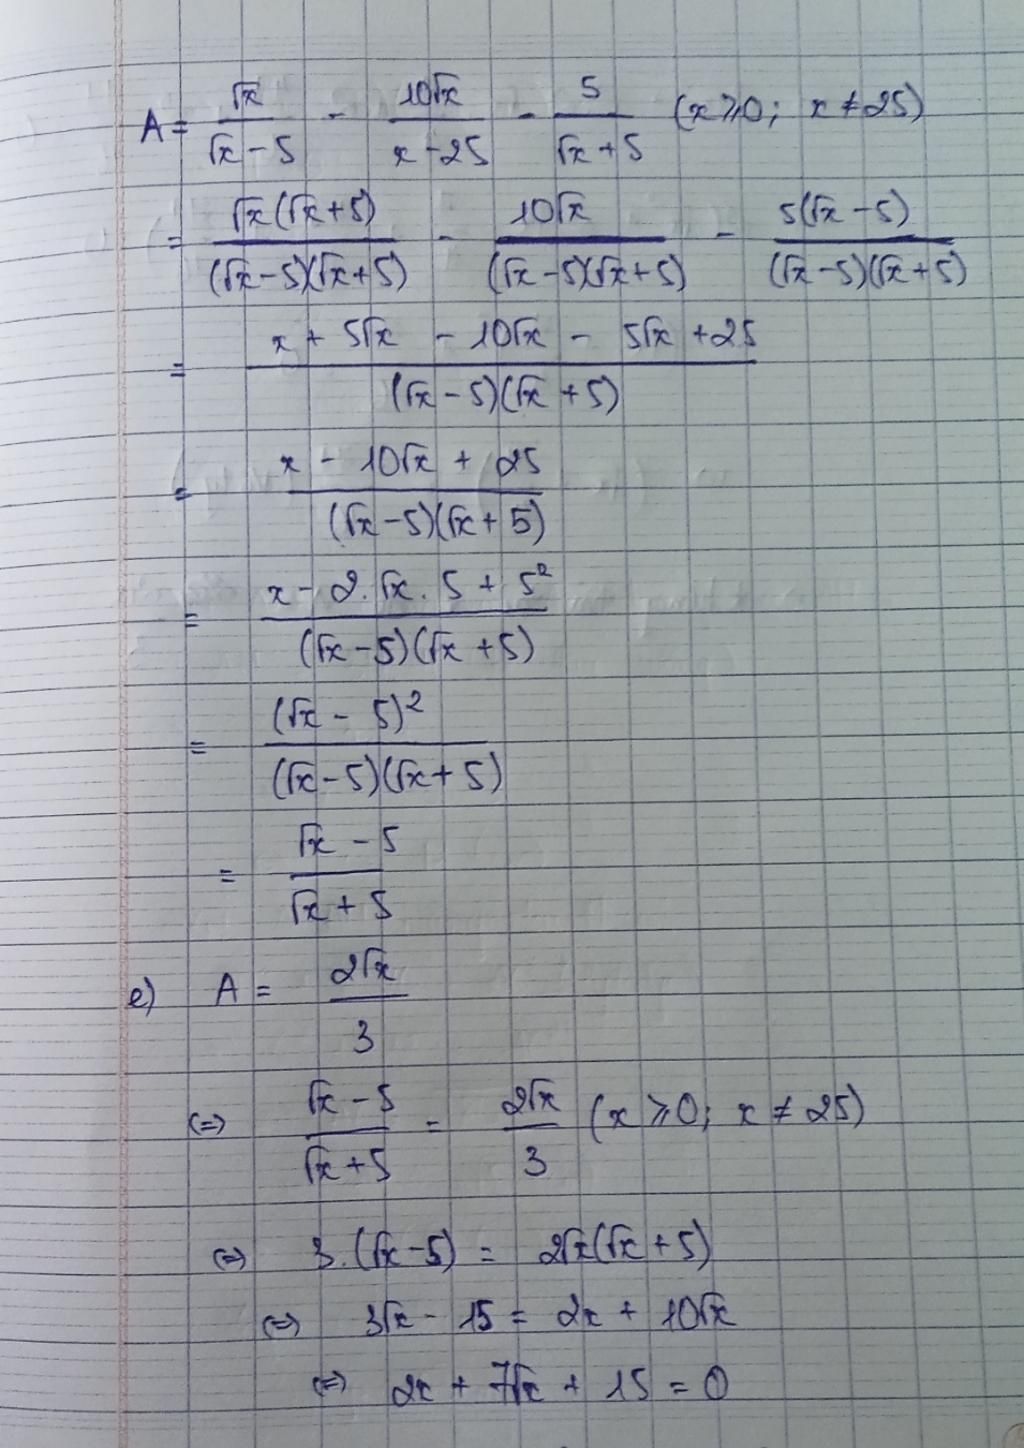 A = √x/(√x - 5) - 10√x/(x - 25) - 5/(√x + 5) (x ⩾ 0; x ≠ 25)
= √x(√x + 5)/((√x - 5)(√x + 5)) - 10√x/((√x - 5)(√x + 5)) - 5(√x - 5)/((√x - 5)(√x + 5))
= (x + 5√x - 10√x - 5√x + 25)/((√x - 5)(√x + 5))
= (x - 10√x + 25)/((√x - 5)(√x + 5))
= (x - 2.√x.5 + 5²)/((√x - 5)(√x + 5))
= (√x - 5)²/((√x - 5)(√x + 5))
= (√x - 5)/(√x + 5)
e) A = 2√x/3
(=) (√x - 5)/(√x + 5) = 2√x/3 (x ⩾ 0; x ≠ 25)
(=) 3.(√x - 5) = 2√x(√x + 5)
(=) 3√x - 15 = 2x + 10√x
(=) 2x + 7√x + 15 = 0